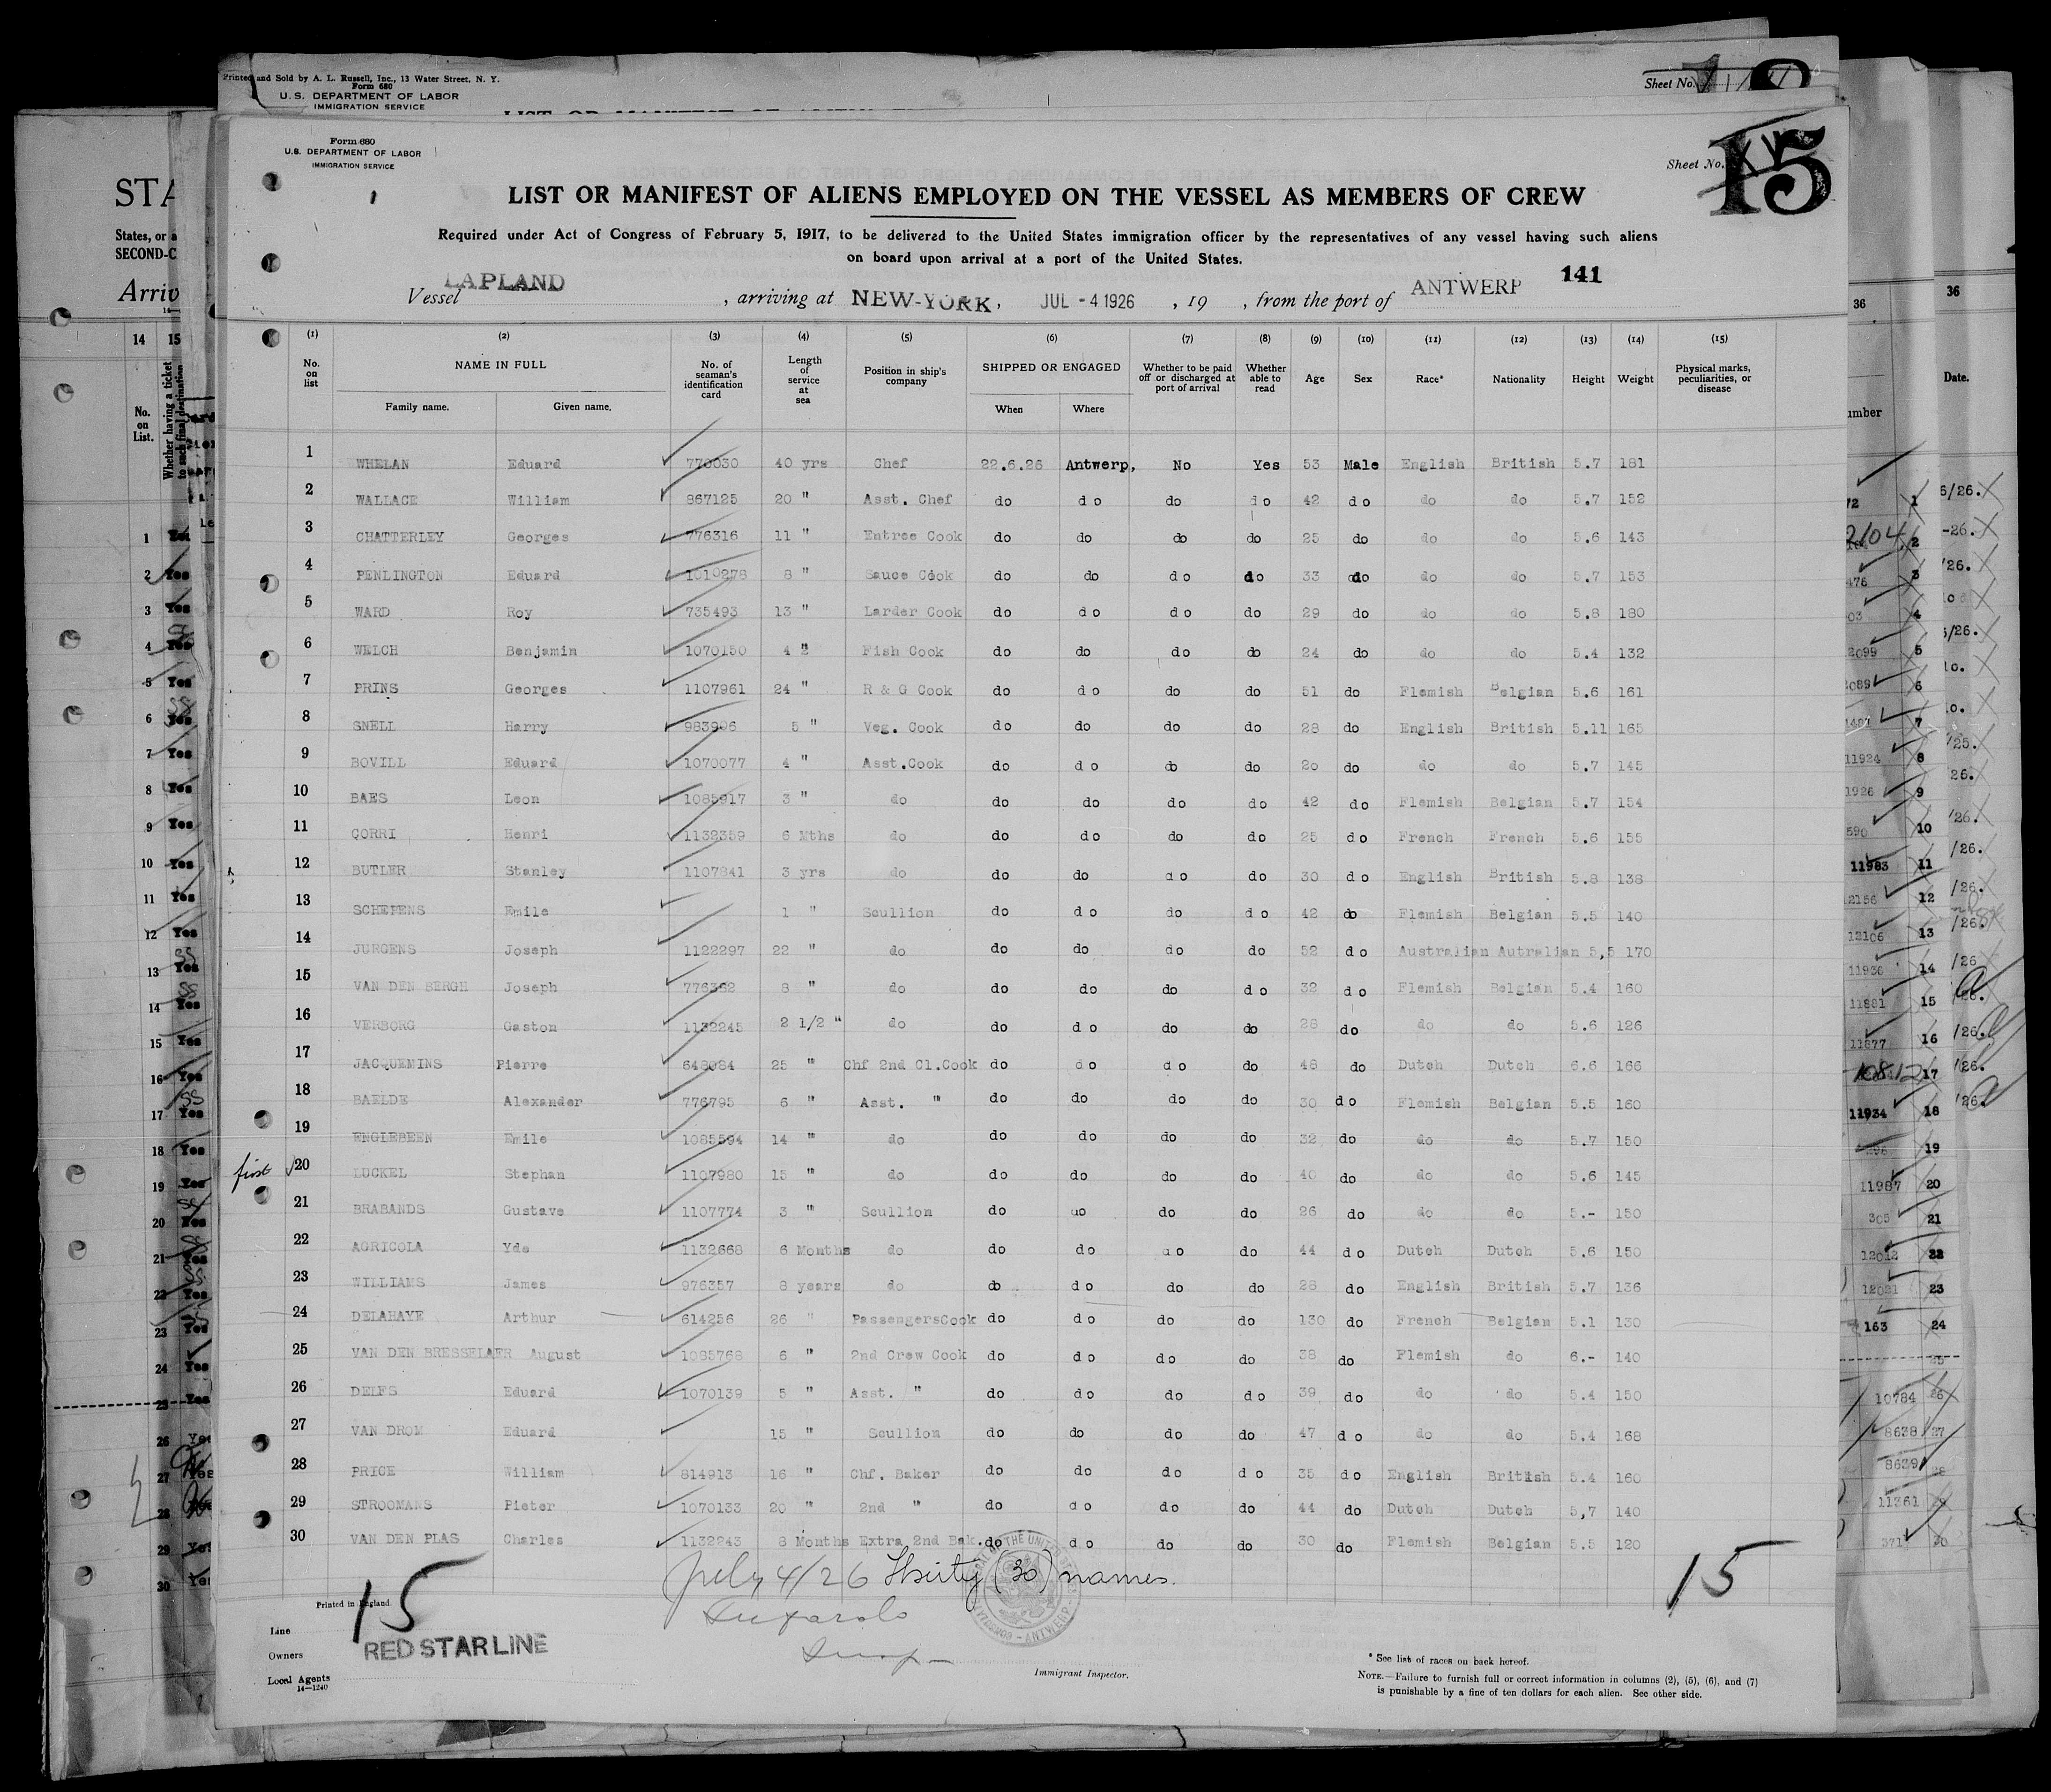 Printed and Sold by A. L. Russell, Inc., 13 Water Street, N. Y.
Form 680
U. S. DEPARTMENT OF LABOR
IMMIGRATION SERVICE
Sheet No.
Form 680
U. S. DEPARTMENT OF LABOR
IMMIGRATION SERVICE
Sheet No. 15
LIST OR MANIFEST OF ALIENS EMPLOYED ON THE VESSEL AS MEMBERS OF CREW
Required under Act of Congress of February 5, 1917, to be delivered to the United States immigration officer by the representatives of any vessel having such aliens
on board upon arrival at a port of the United States.
141
Vessel LAPLAND , arriving at NEW-YORK, JUL - 4 1926 , 19 , from the port of ANTWERP
(1) (2) (3) (4) (5) (6) (7) (8) (9) (10) (11) (12) (13) (14) (15)
No. on list NAME IN FULL Family name. Given name. No. of seaman's identification card Length of service at sea Position in ship's company SHIPPED OR ENGAGED When Where Whether to be paid off or discharged at port of arrival Whether able to read Age Sex Race* Nationality Height Weight Physical marks, peculiarities, or disease
1 WHELAN Eduard 770030 40 yrs Chef 22.6.26 Antwerp, No Yes 53 Male English British 5.7 181
2 WALLACE William 867125 20 " Asst. Chef do do do do 42 do do do 5.7 152
3 CHATTERLEY Georges 776316 11 " Entree Cook do do do do 25 do do do 5.6 143
4 PENLINGTON Eduard 1010278 8 " Sauce Cook do do do do 33 do do do 5.7 153
5 WARD Roy 735493 13 " Larder Cook do do do do 29 do do do 5.8 180
6 WELCH Benjamin 1070150 4 " Fish Cook do do do do 24 do do do 5.4 132
7 PRINS Georges 1107961 24 " R & G Cook do do do do 51 do Flemish Belgian 5.6 161
8 SNELL Harry 983906 5 " Veg. Cook do do do do 28 do English British 5.11 165
9 BOVILL Eduard 1070077 4 " Asst.Cook do do do do 20 do do do 5.7 145
10 BAES Leon 1085917 3 " do do do do do 42 do Flemish Belgian 5.7 154
11 CORRI Henri 1132359 6 Mths do do do do do 25 do French French 5.6 155
12 BUTLER Stanley 1107841 3 yrs do do do do do 30 do English British 5.8 138
13 SCHEPENS Emile 1 " Scullion do do do do 42 do Flemish Belgian 5.5 140
14 JURGENS Joseph 1122297 22 " do do do do do 52 do Australian Autralian 5,5 170
15 VAN DEN BERGH Joseph 776382 8 " do do do do do 32 do Flemish Belgian 5.4 160
16 VERBORG Gaston 1132245 2 1/2 " do do do do do 28 do do do 5.6 126
17 JACQUEMINS Pierre 648084 25 " Chf 2nd Cl.Cook do do do do 48 do Dutch Dutch 6.6 166
18 BAELDE Alexander 776795 6 " Asst. " do do do do 30 do Flemish Belgian 5.5 160
19 ENGLEBEEN Emile 1085594 14 " do do do do do 32 do do do 5.7 150
first 20 LUCKEL Stephan 1107980 15 " do do do do do 40 do do do 5.6 145
21 BRABANDS Gustave 1107774 3 " Scullion do do do do 26 do do do 5.- 150
22 AGRICOLA Yde 1132668 6 Months do do do do do 44 do Dutch Dutch 5.6 150
23 WILLIAMS James 976357 8 years do do do do do 28 do English British 5.7 136
24 DELAHAYE Arthur 614256 26 " PassengersCook do do do do 130 do French Belgian 5.1 130
25 VAN DEN BRESSELAER August 1085768 6 " 2nd Crew Cook do do do do 38 do Flemish do 6.- 140
26 DELFS Eduard 1070139 5 " Asst. " do do do do 39 do do do 5.4 150
27 VAN DROM Eduard 15 " Scullion do do do do 47 do do do 5.4 168
28 PRICE William 814913 16 " Chf. Baker do do do do 35 do English British 5.4 160
29 STROOMANS Pieter 1070133 20 " 2nd " do do do do 44 do Dutch Dutch 5,7 140
30 VAN DEN PLAS Charles 1132243 8 Months Extra 2nd Bak. do do do do 30 do Flemish Belgian 5.5 120
July 4/26 Thirty (30) names.
15
15
Printed in England
Line
Owners RED STAR LINE
Local Agents
14—1240
Immigrant Inspector.
* See list of races on back hereof.
NOTE.—Failure to furnish full or correct information in columns (2), (5), (6), and (7)
is punishable by a fine of ten dollars for each alien. See other side.